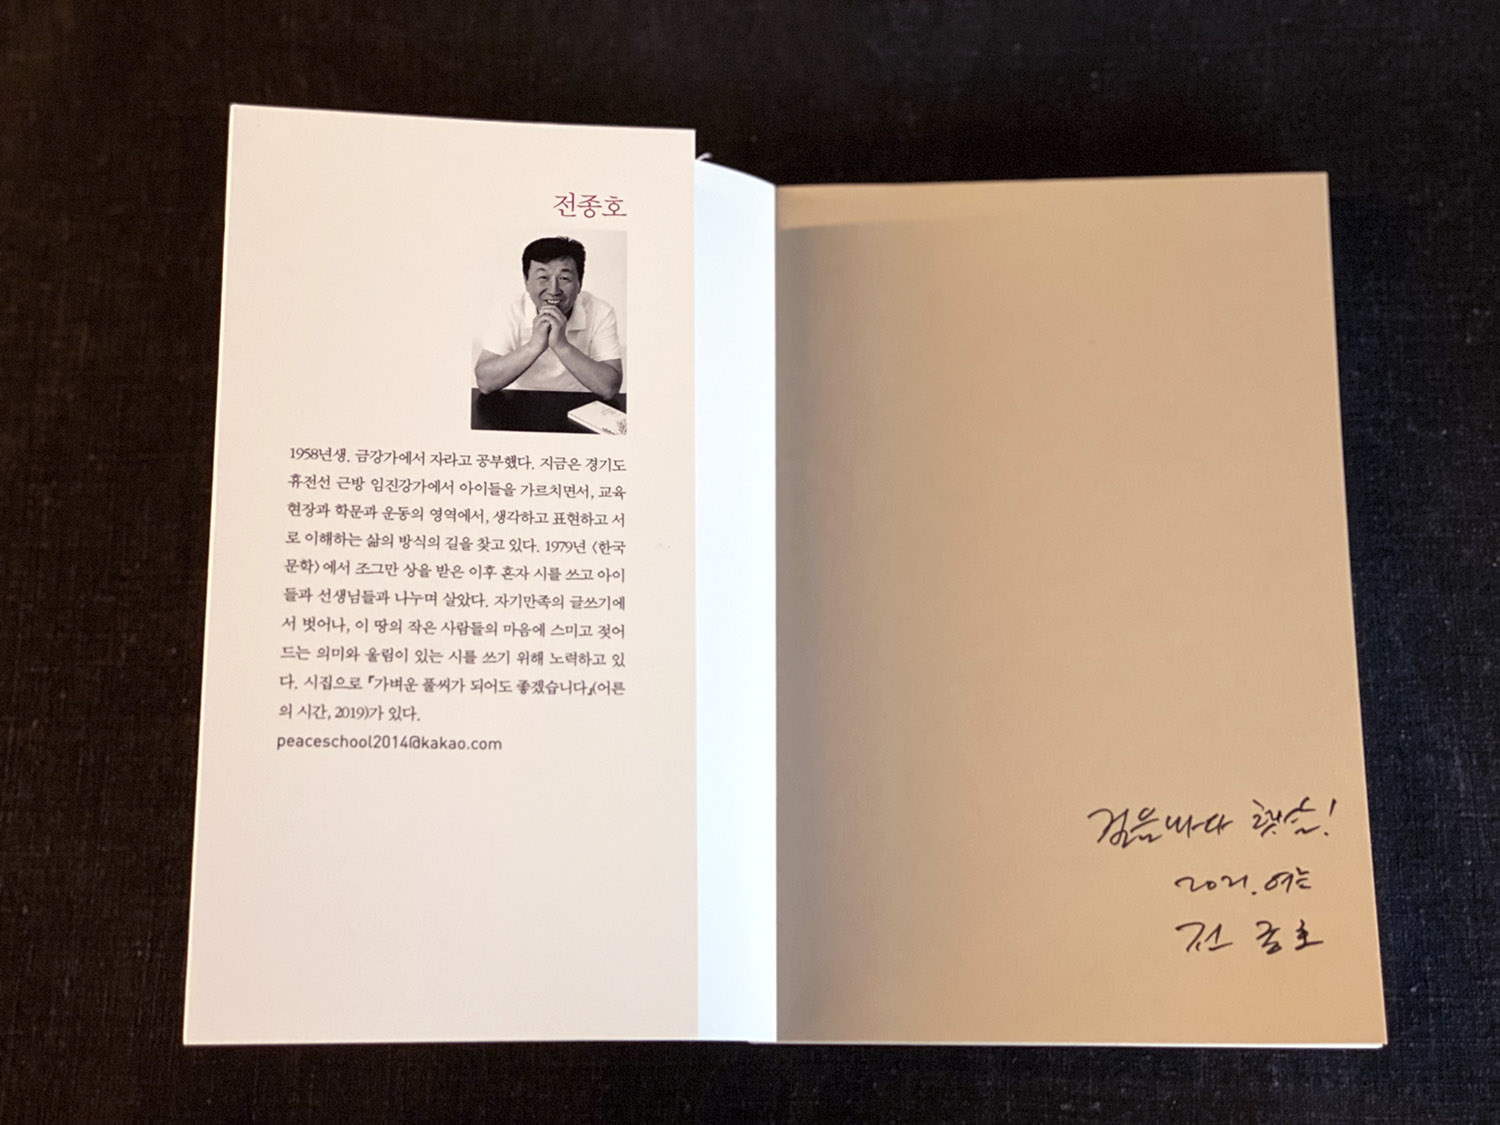 전종호
1958년생. 금강가에서 자라고 공부했다. 지금은 경기도
휴전선 근방 임진강가에서 아이들을 가르치면서, 교육
현장과 학문과 운동의 영역에서, 생각하고 표현하고 서
로 이해하는 삶의 방식의 길을 찾고 있다. 1979년 〈한국
문학〉에서 조그만 상을 받은 이후 혼자 시를 쓰고 아이
들과 선생님들과 나누며 살았다. 자기만족의 글쓰기에
서 벗어나, 이 땅의 작은 사람들의 마음에 스미고 젖어
드는 의미와 울림이 있는 시를 쓰기 위해 노력하고 있
다. 시집으로 『가벼운 풀씨가 되어도 좋겠습니다』(어른
의 시간, 2019)가 있다.
peaceschool2014@kakao.com
걸음마다 햇살!
2021. 여름
전종호